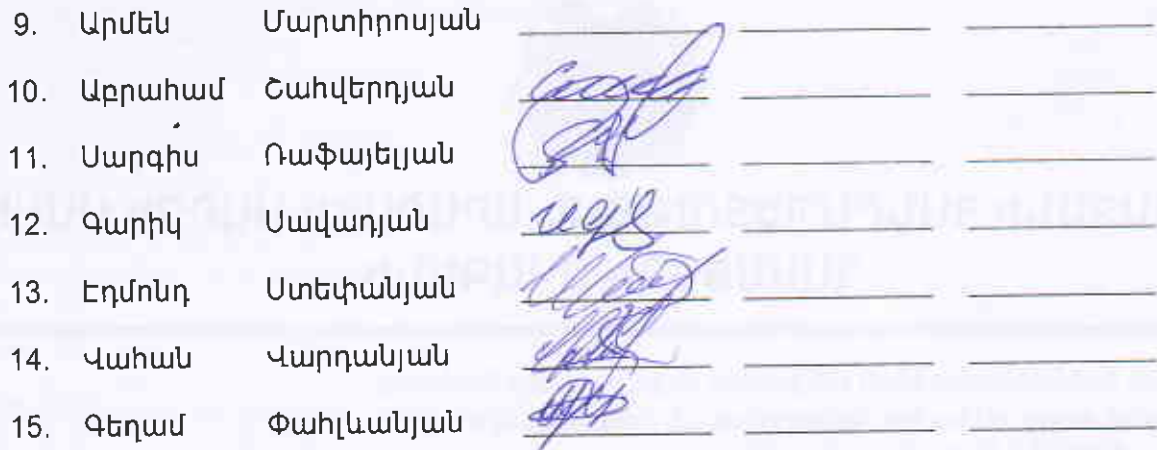 9. Արմեն Մարտիրոսյան
10. Աբրահամ Շահվերդյան
11. Սարգիս Ռաֆայելյան
12. Գարիկ Սավադյան
13. Էդմոնդ Ստեփանյան
14. Վահան Վարդանյան
15. Գեղամ Փահլևանյան